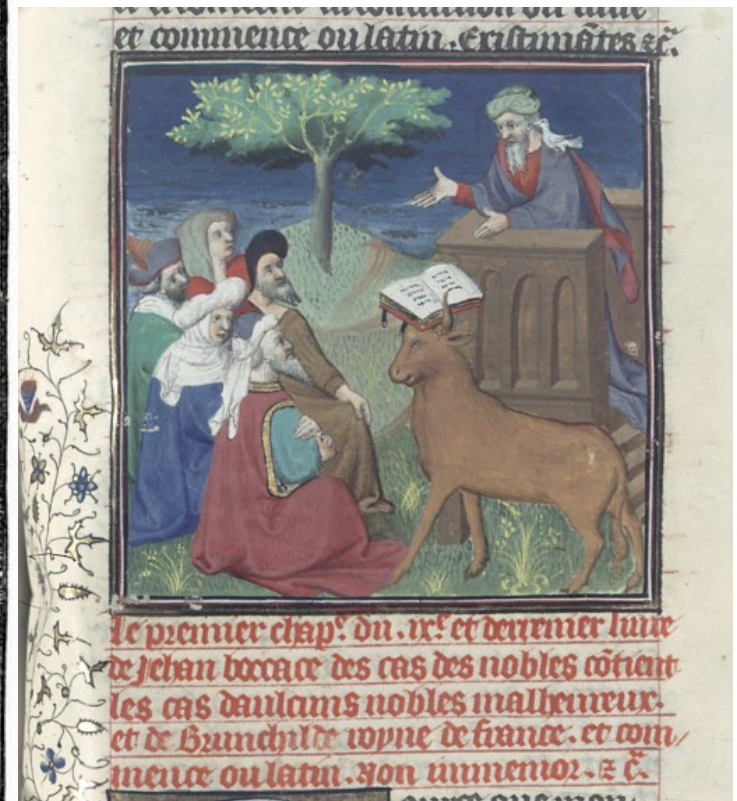 et commence ou latin. Existimãtes ⁊c̃.
Le premier chap̃e. du .ixe. et derrenier liure
de Jehan boccace des cas des nobles cõtient
les cas daulcuns nobles malheureux.
et de Brunchilde royne de france. et com/
mence ou latin. Non immemor. ⁊ c̃.